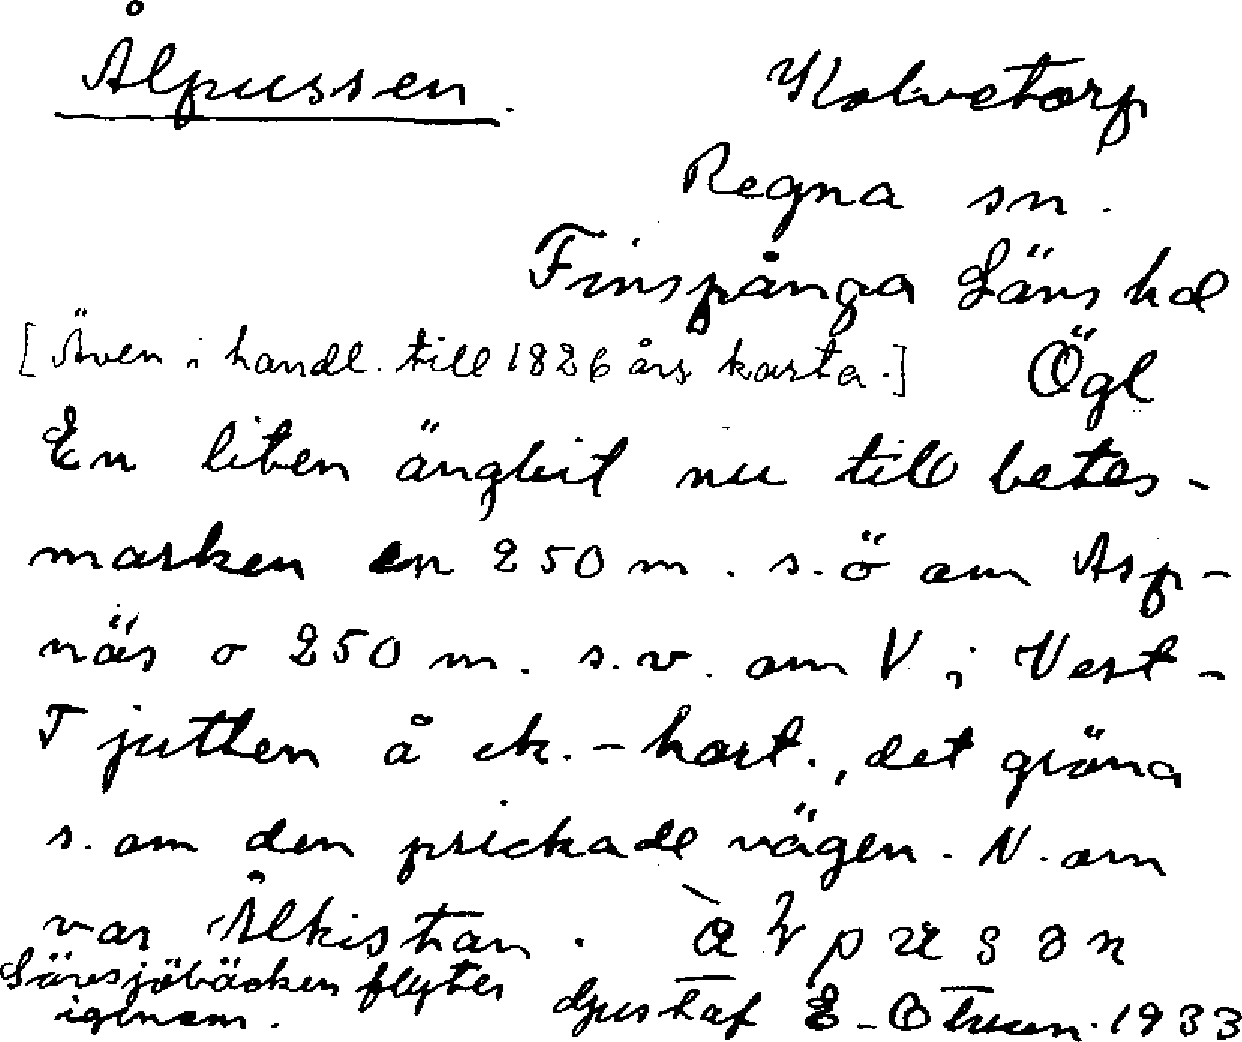 Ålpussen.
Kolvetorp
Regna sn.
Finspånga Läns hd
[Även i handl. till 1826 års karta.]
Ögl
En liten ängbit nu till betes-
marken en 250 m. s.ö om Asp-
näs o 250 m. s.v. om V i Vest-
Tjutten å ek.-kart., det gröna
s. om den prickade vägen. N. om
var Ålkistan.
Sävsjöbäcken flyter
igenom.
Gustaf E-son 1933